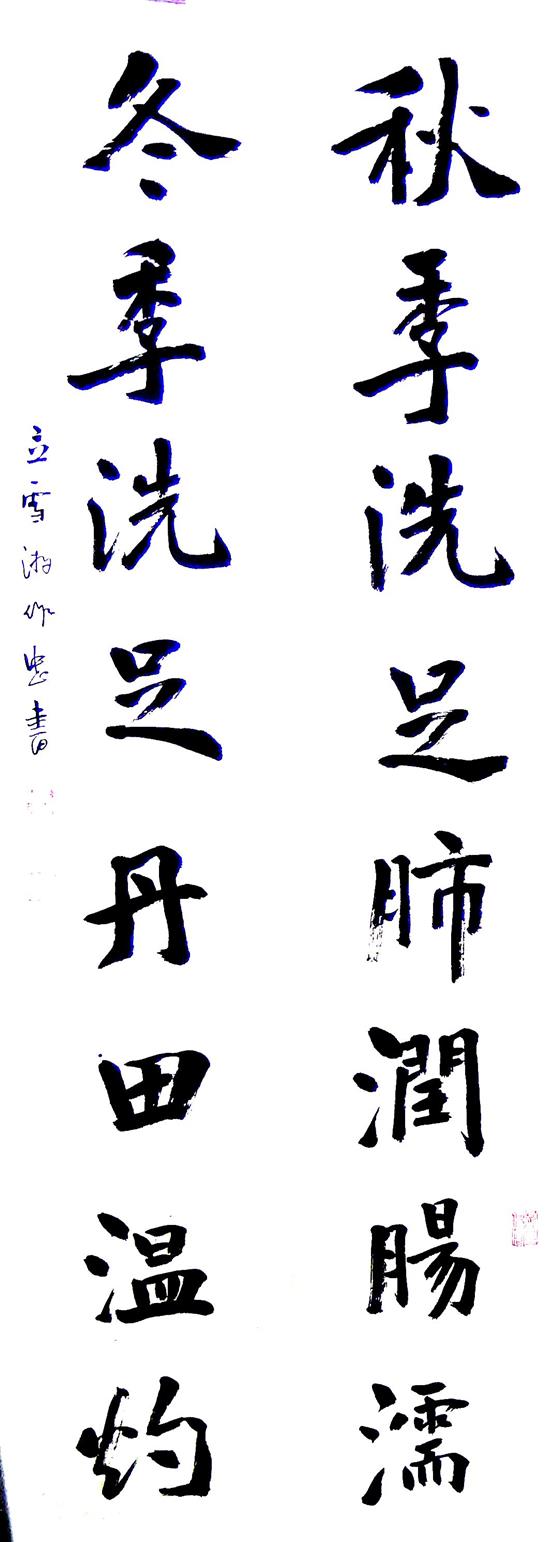 秋季洗足肺潤腸濡
冬季洗足丹田温灼
立雪湖作忠書